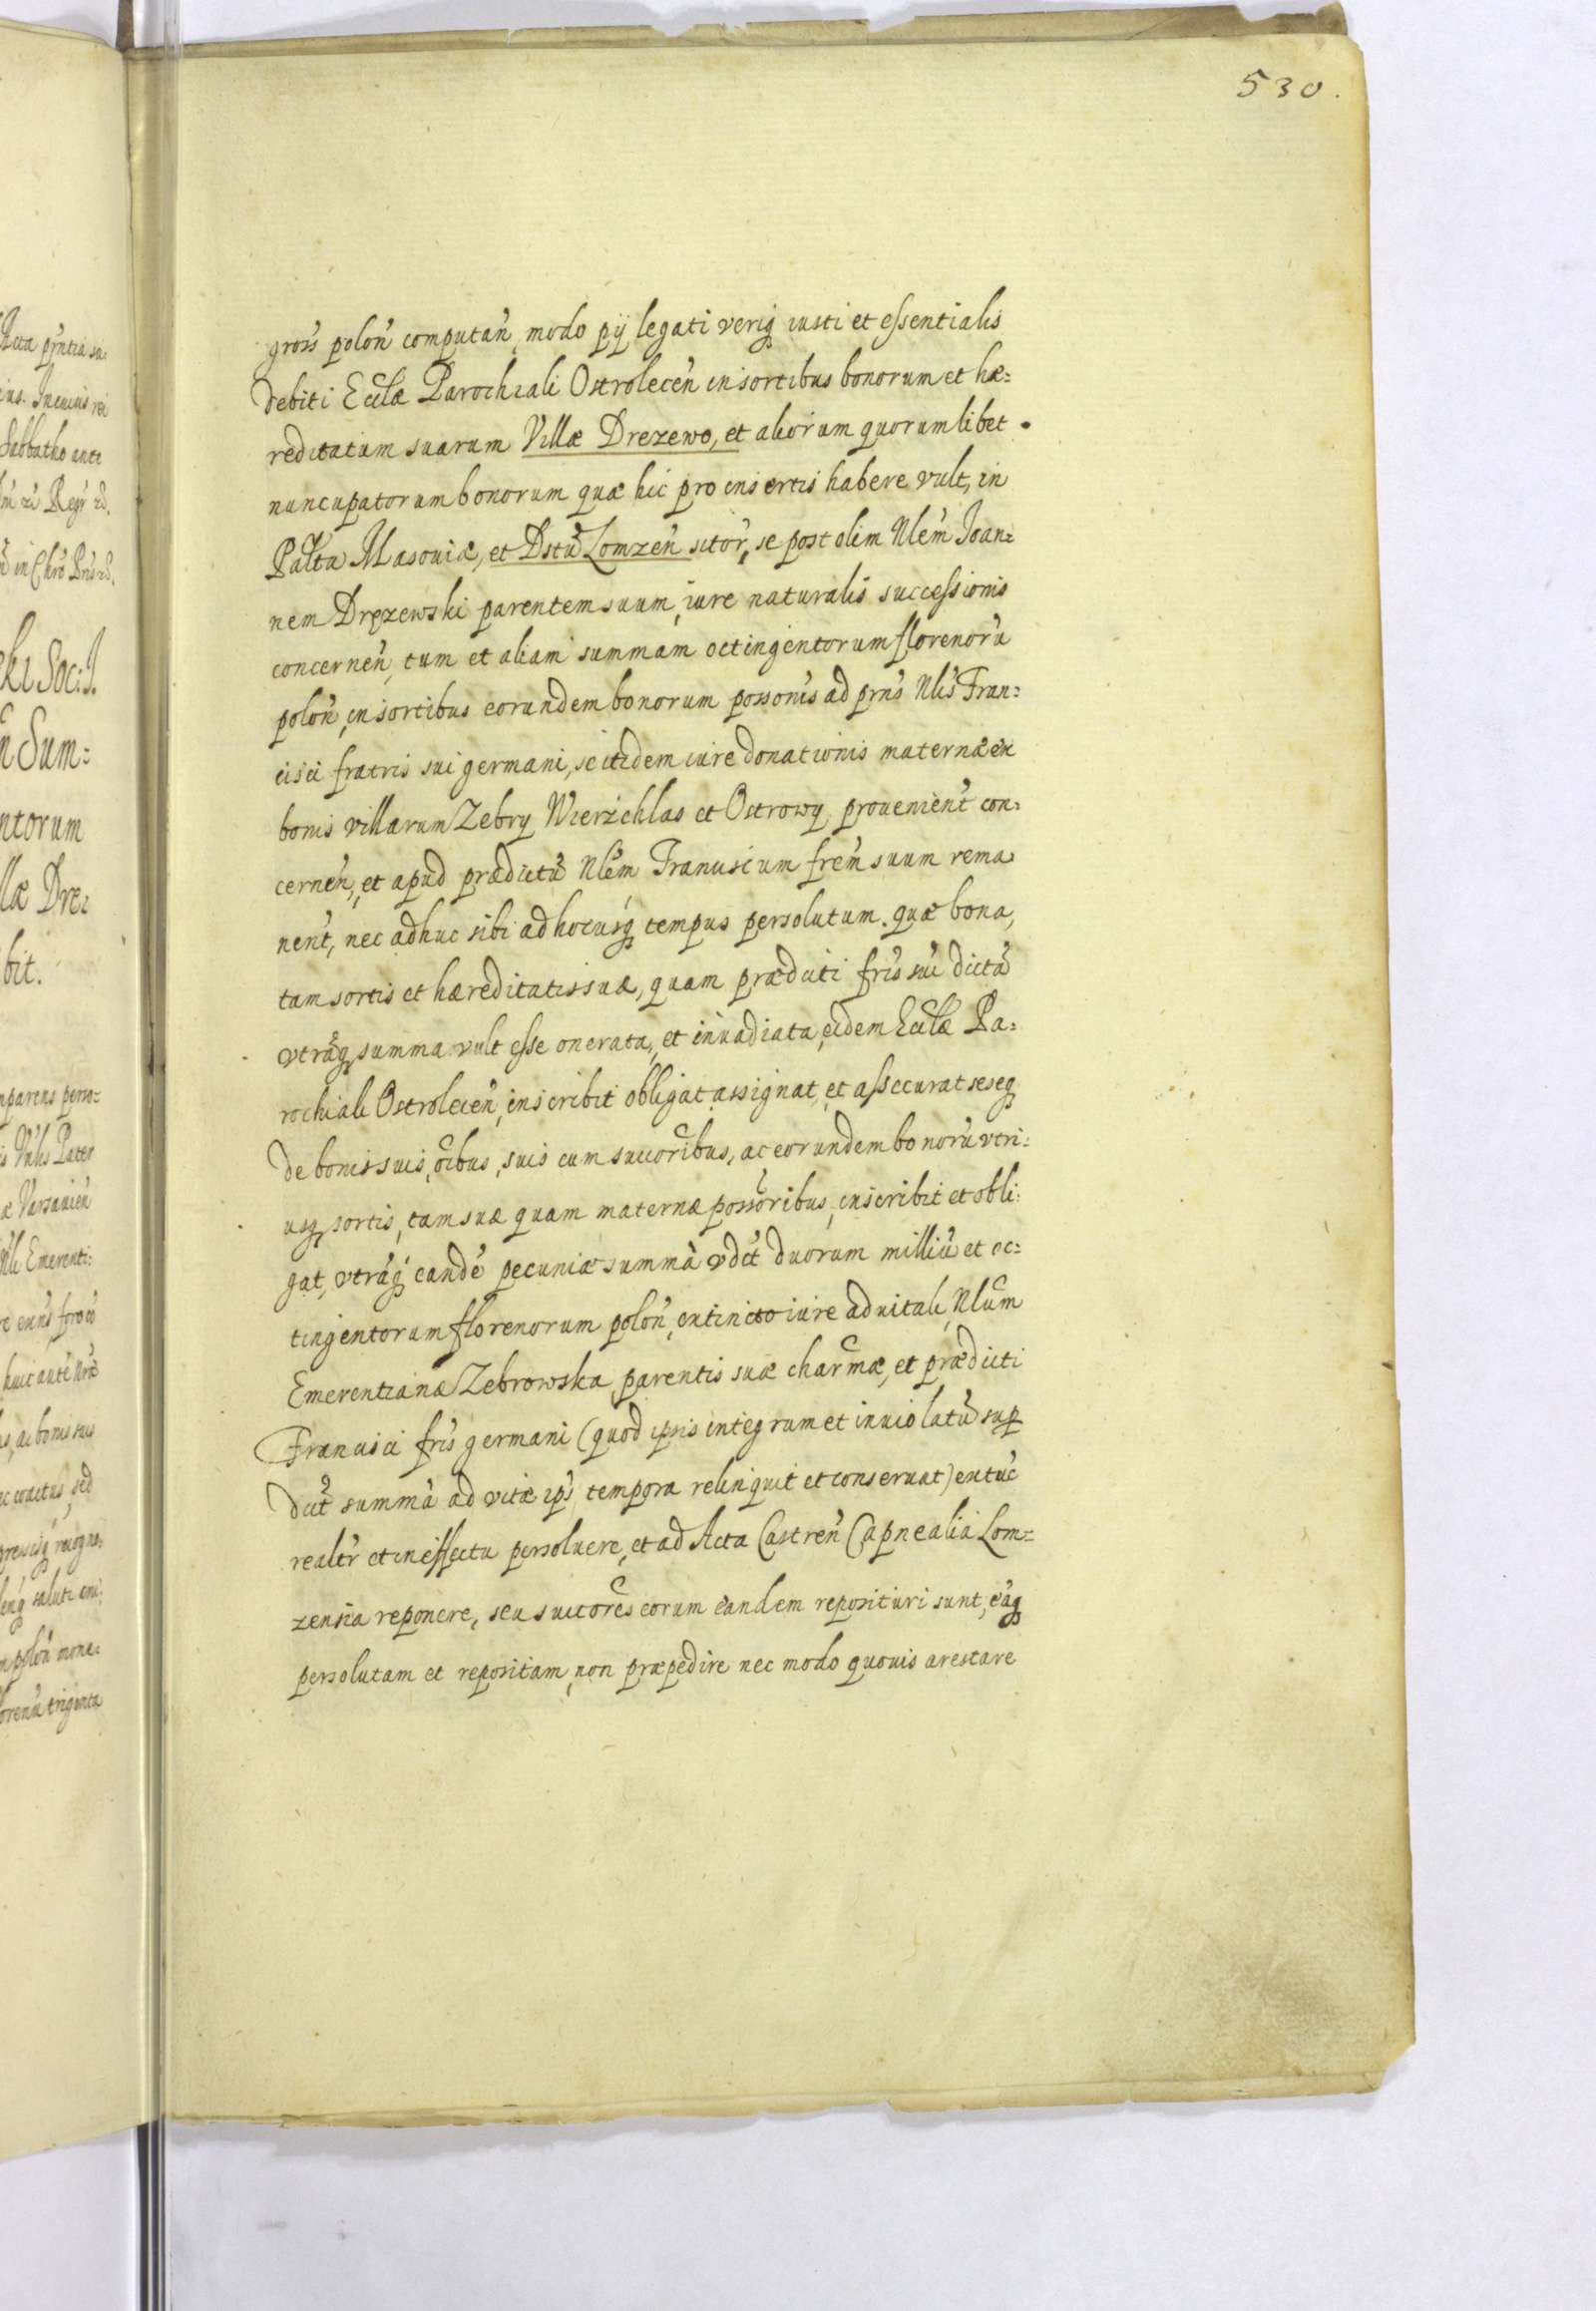 530.
gross polon̄ computan̄, modo pÿ legati veriq iusti et essentialis
debiti Eccłæ Parochiali Ostrolecen̄ in sortibus bonorum et hæ=
reditatum suarum Villæ Drezewo, et aliorum quorumlibet
nuncupatorum bonorum quæ hic pro insertis habere vult, in
Pałtu Masouiæ, et Dstũ Lomzen̄ sitor̃, se post olim Nlem̄ Ioan=
nem Dręzewski parentem suum, iure naturalis successionis
concernen̄, tum et aliam summam octingentorum florenorũ
polon̄, in sortibus eorundem bonorum possonis ad prn̄s Nlis Fran=
cisci fratris sui germani, se itidem iure donationis maternæ ex
bonis villarum Zebry Wierzchlas et Ostrowy prouenient̄ con=
cernen̄, et apud prædictũ Nlem̄ Franciscum frem̄ suum rema
nent̄, nec adhuc sibi ad hocusq tempus persolutum. quæ bona,
tam sortis et hæreditatis suæ, quam prædicti fris̄ sui dictã
vtrãq summa vult esse onerata, et inuadiata, eidem Eccłæ Pa=
rochiali Ostrolecen̄, inscribit obligat assignat, et assecurat seseq
de bonis suis, oībus, suis cum succoribus, ac eorundem bonorũ vtri=
usq sortis, tam suæ quam maternæ possoribus, inscribit et obli=
gat, vtrãq eandẽ pecuniæ summã vdct duorum milliũ et oc=
tingentorum florenorum polon̄, extincto iure aduitali, Nlum
Emerentianæ Zebrowska, parentis suæ charmæ, et prædicti
Francisci fris̄ germani (quod ipsis integrum et inuiolatũ sup
dct̃ summã ad vitæ ips̄ tempora relinquit et conseruat) extũc
realtr̄ et in effectu persoluere, et ad Acta Castren̄ Capnealia Lom=
zensia reponere, seu succores eorum eandem reposituri sunt, eãq
persolutam et repositam, non præpedire nec modo quouis arestare